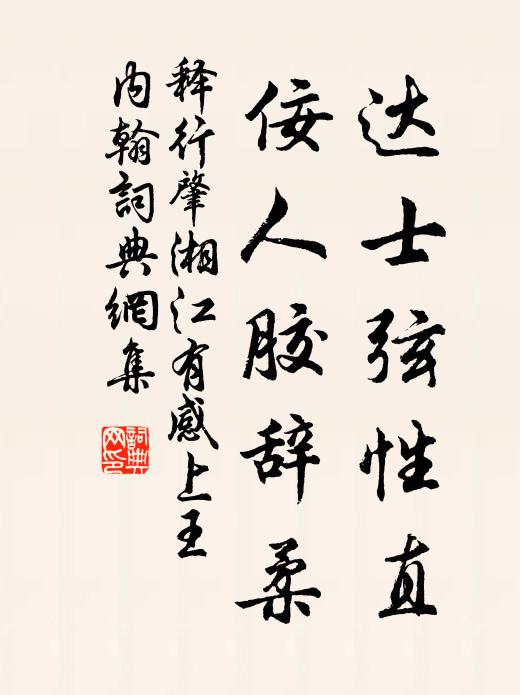 达士弦性直
佞人胶辞柔
释行肇湘江有感上王
内翰詞典網集
詞典
网印